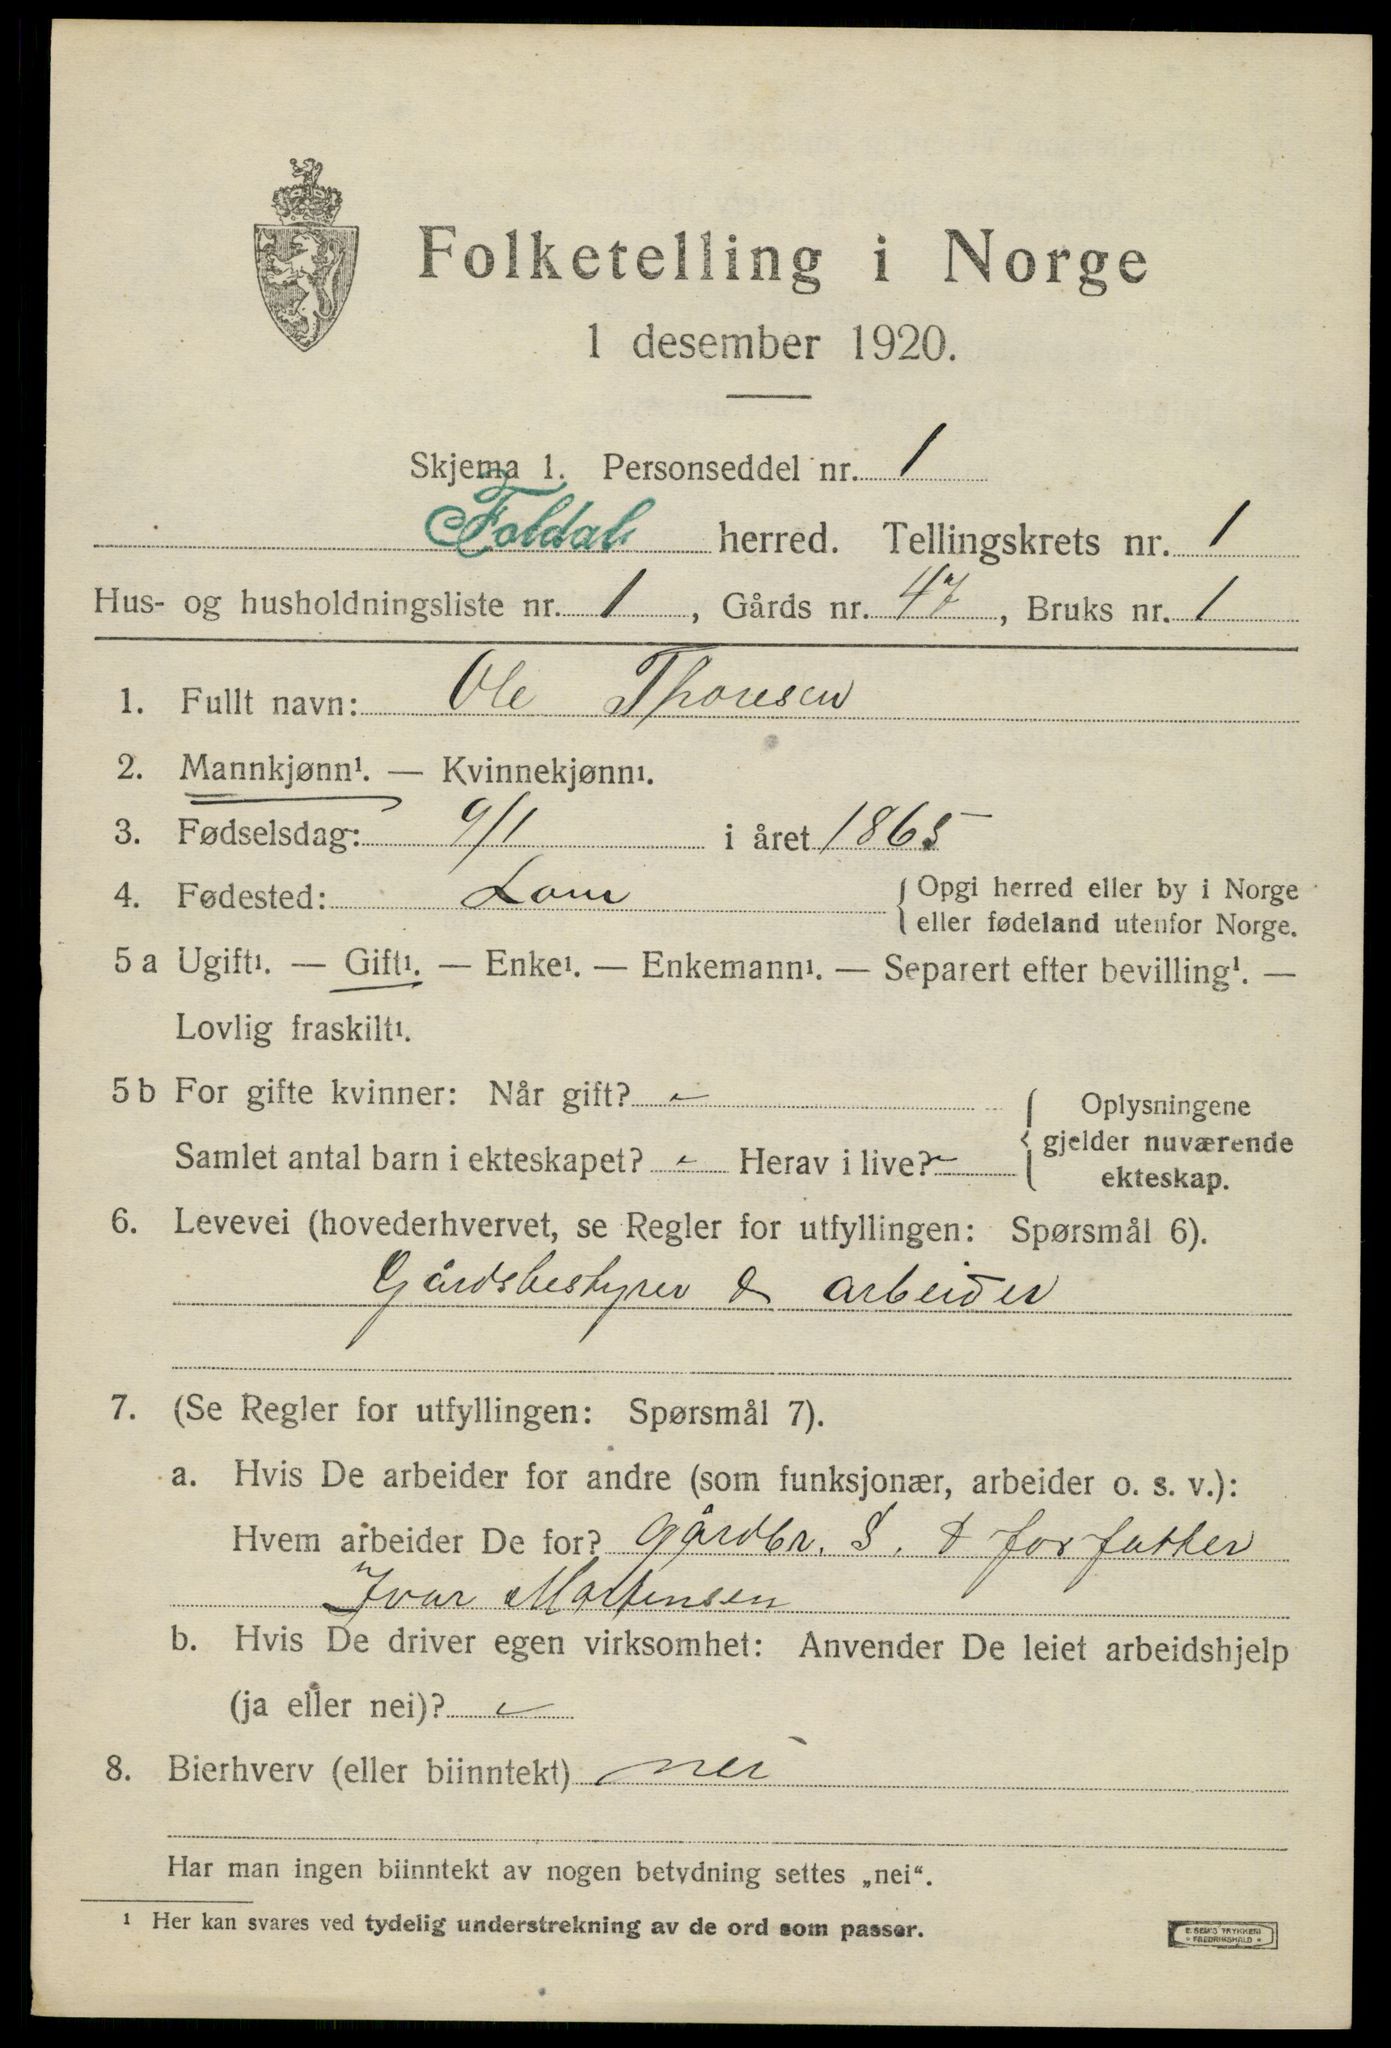 Folketelling i Norge
1 desember 1920.
Skjema 1. Personseddel nr. 1
Foldal herred. Tellingskrets nr. 1
Hus- og husholdningsliste nr. 1, Gårds nr. 47, Bruks nr. 1
1. Fullt navn: Ole Thoresen
2. Mannkjønn¹. — Kvinnekjønn¹.
3. Fødselsdag: 9/1 i året 1865
4. Fødested: Lom { Opgi herred eller by i Norge
eller fødeland utenfor Norge.
5 a Ugift¹. — Gift¹. — Enke¹. — Enkemann¹. — Separert efter bevilling¹. —
Lovlig fraskilt¹.
5 b For gifte kvinner: Når gift? -
Samlet antal barn i ekteskapet? - Herav i live? - { Oplysningene
gjelder nuværende
ekteskap.
6. Levevei (hovederhvervet, se Regler for utfyllingen: Spørsmål 6).
Gårdsbestyrer & arbeider
7. (Se Regler for utfyllingen: Spørsmål 7).
a. Hvis De arbeider for andre (som funksjonær, arbeider o. s. v.):
Hvem arbeider De for? gårdbr. S. & forfatter
Ivar Mortensen
b. Hvis De driver egen virksomhet: Anvender De leiet arbeidshjelp
(ja eller nei)? -
8. Bierhverv (eller biinntekt) nei
Har man ingen biinntekt av nogen betydning settes „nei“.
¹ Her kan svares ved tydelig understrekning av de ord som passer.
E. SEM'S TRYKKERI
FREDRIKSHALD